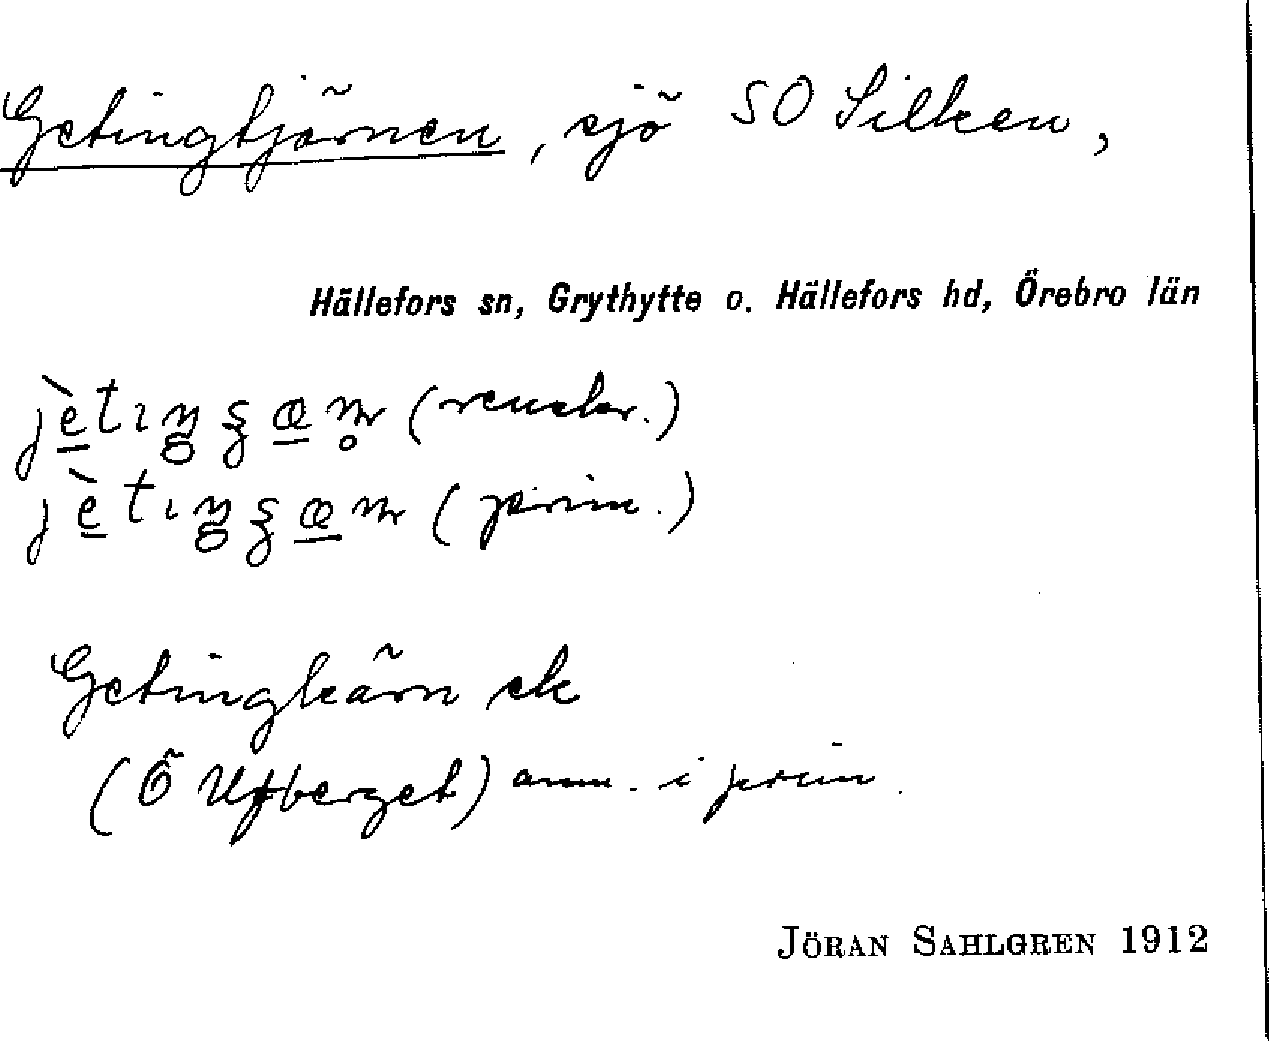 Getingtjärnen, sjö SO Silken,
Hällefors sn, Grythytte o. Hällefors hd, Örebro län
(renskr.)
(prim.)
Getingkärn sk
(Ö Ufberget) anm. i prim
JÖRAN SAHLGREN 1912